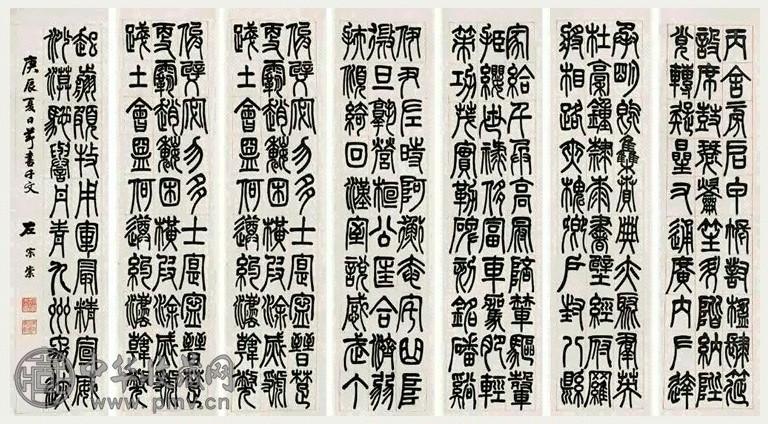 丙舍傍啟甲帳對楹肆筵
設席鼓瑟吹笙升階納陛
弁轉疑星右通廣內左達
承明既集墳典亦聚羣英
杜稾鍾隸漆書壁經府羅
將相路俠槐卿戶封八縣
家給千兵高冠陪輦驅轂
振纓世祿侈富車駕肥輕
策功茂實勒碑刻銘磻谿
伊尹佐時阿衡奄宅曲阜
微旦孰營桓公匡合濟弱
扶傾綺回漢惠說感武丁
俊乂密勿多士寔寧晉楚
更霸趙魏困橫假途滅虢
踐土會盟何遵約法韓弊
俊乂密勿多士寔寧晉楚
更霸趙魏困橫假途滅虢
踐土會盟何遵約法韓弊
起翦頗牧用軍最精宣威
沙漠馳譽丹青九州禹跡
庚辰夏日節書千文
左宗棠
www.pmv.cn